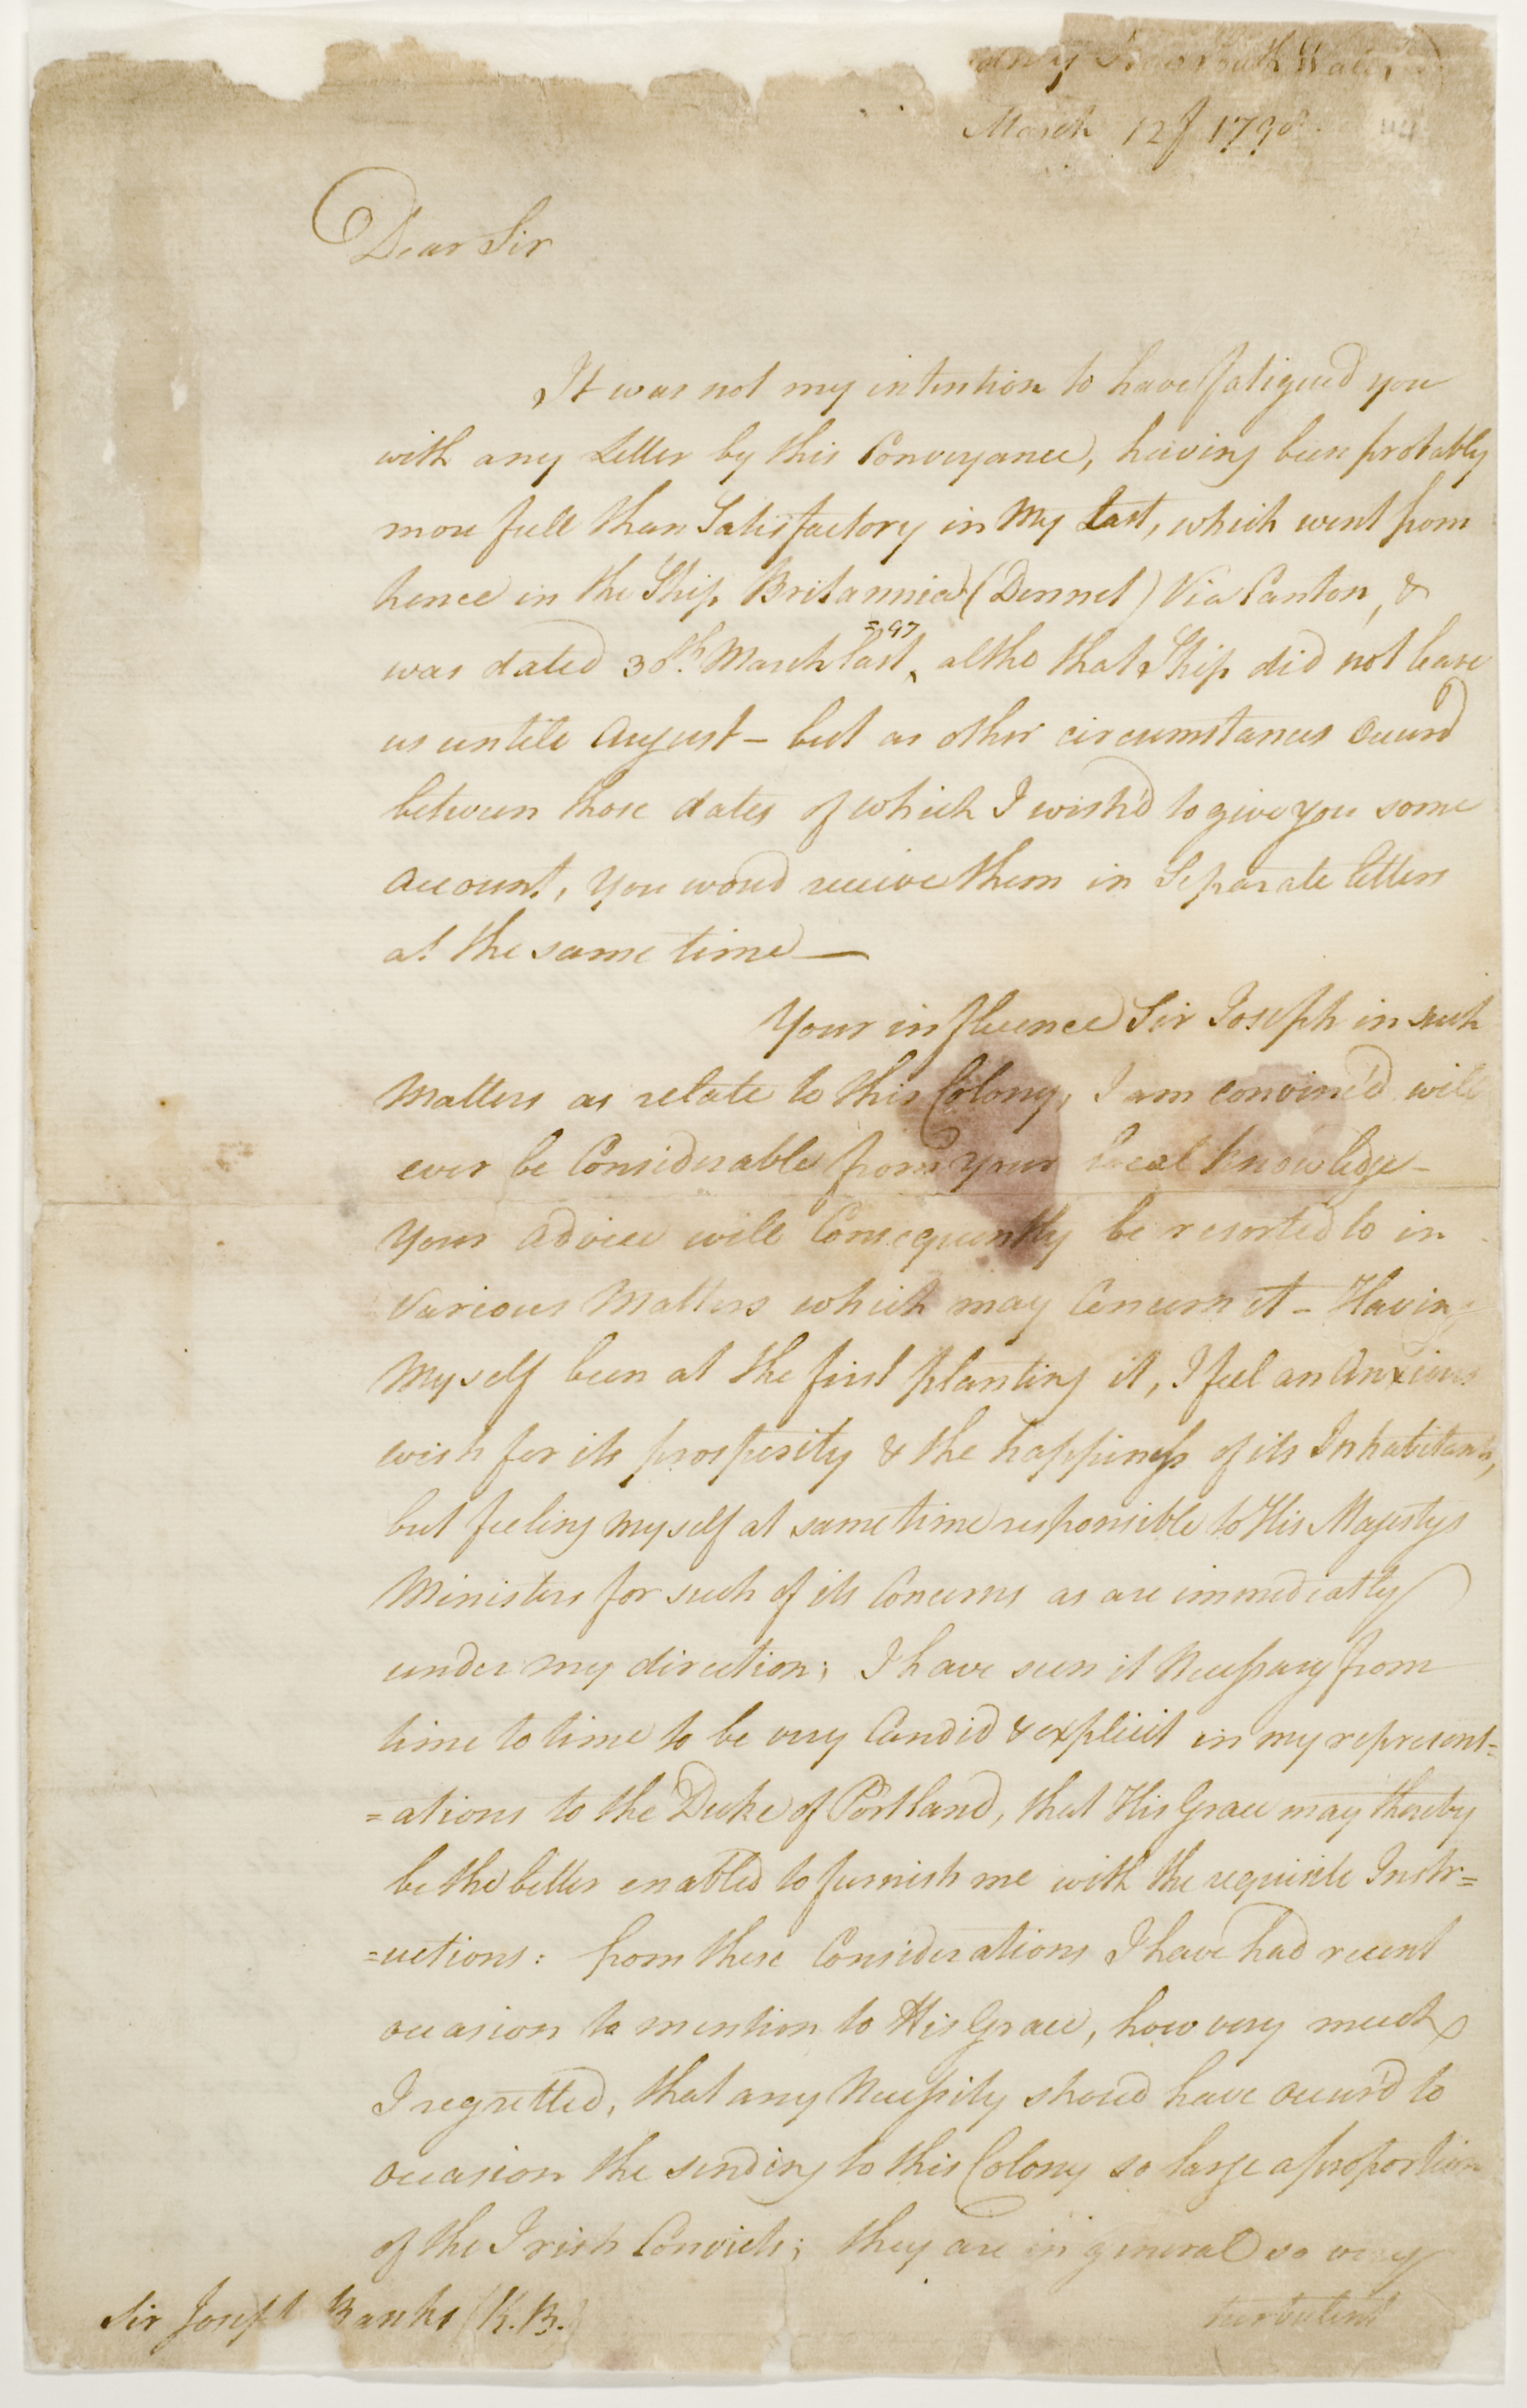 New South Wales
March 12th 1798
Dear Sir
It was not my intention to have fatigued you
with any Letter by this Conveyance, having been probably
more full than Satisfactory in My Last, which went from
hence in the Ship Britannia (Dennet) Via Canton, &
=97
was dated 30th. March last, altho that Ship did not leave
us untill August – but as other circumstances Occurd
between those dates of which I wish'd to give you some
Account, you woud receive them in Separate letters
at the same time —
Your influence Sir Joseph in such
Matters as relate to this Colony, I am convinc'd will
ever be Considerable from your local knowledge –
Your advice will Consequently be resorted to in
Various Matters which may Concern it – Having
Myself been at the first planting it, I feel an Anxious
wish for its prosperity & the happiness of its Inhabitants,
but feeling Myself at same time responsible to His Majestys
Ministers for such of its Concerns as are immediatly
under my direction; I have seen it Necessary from
time to time to be very Candid & explicit in my represent=
=ations to the Duke of Portland, that His Grace may thereby
be the better enabled to furnish me with the requisite Instr=
=uctions: from these Considerations I have had recent
occasion to mention to His Grace, how very much
I regretted, that any Necessity shoud have occur'd to
occasion the sending to this Colony so large a proportion
of the Irish Convicts; they are in general so very
turbulent
Sir Joseph Banks (K.B.)